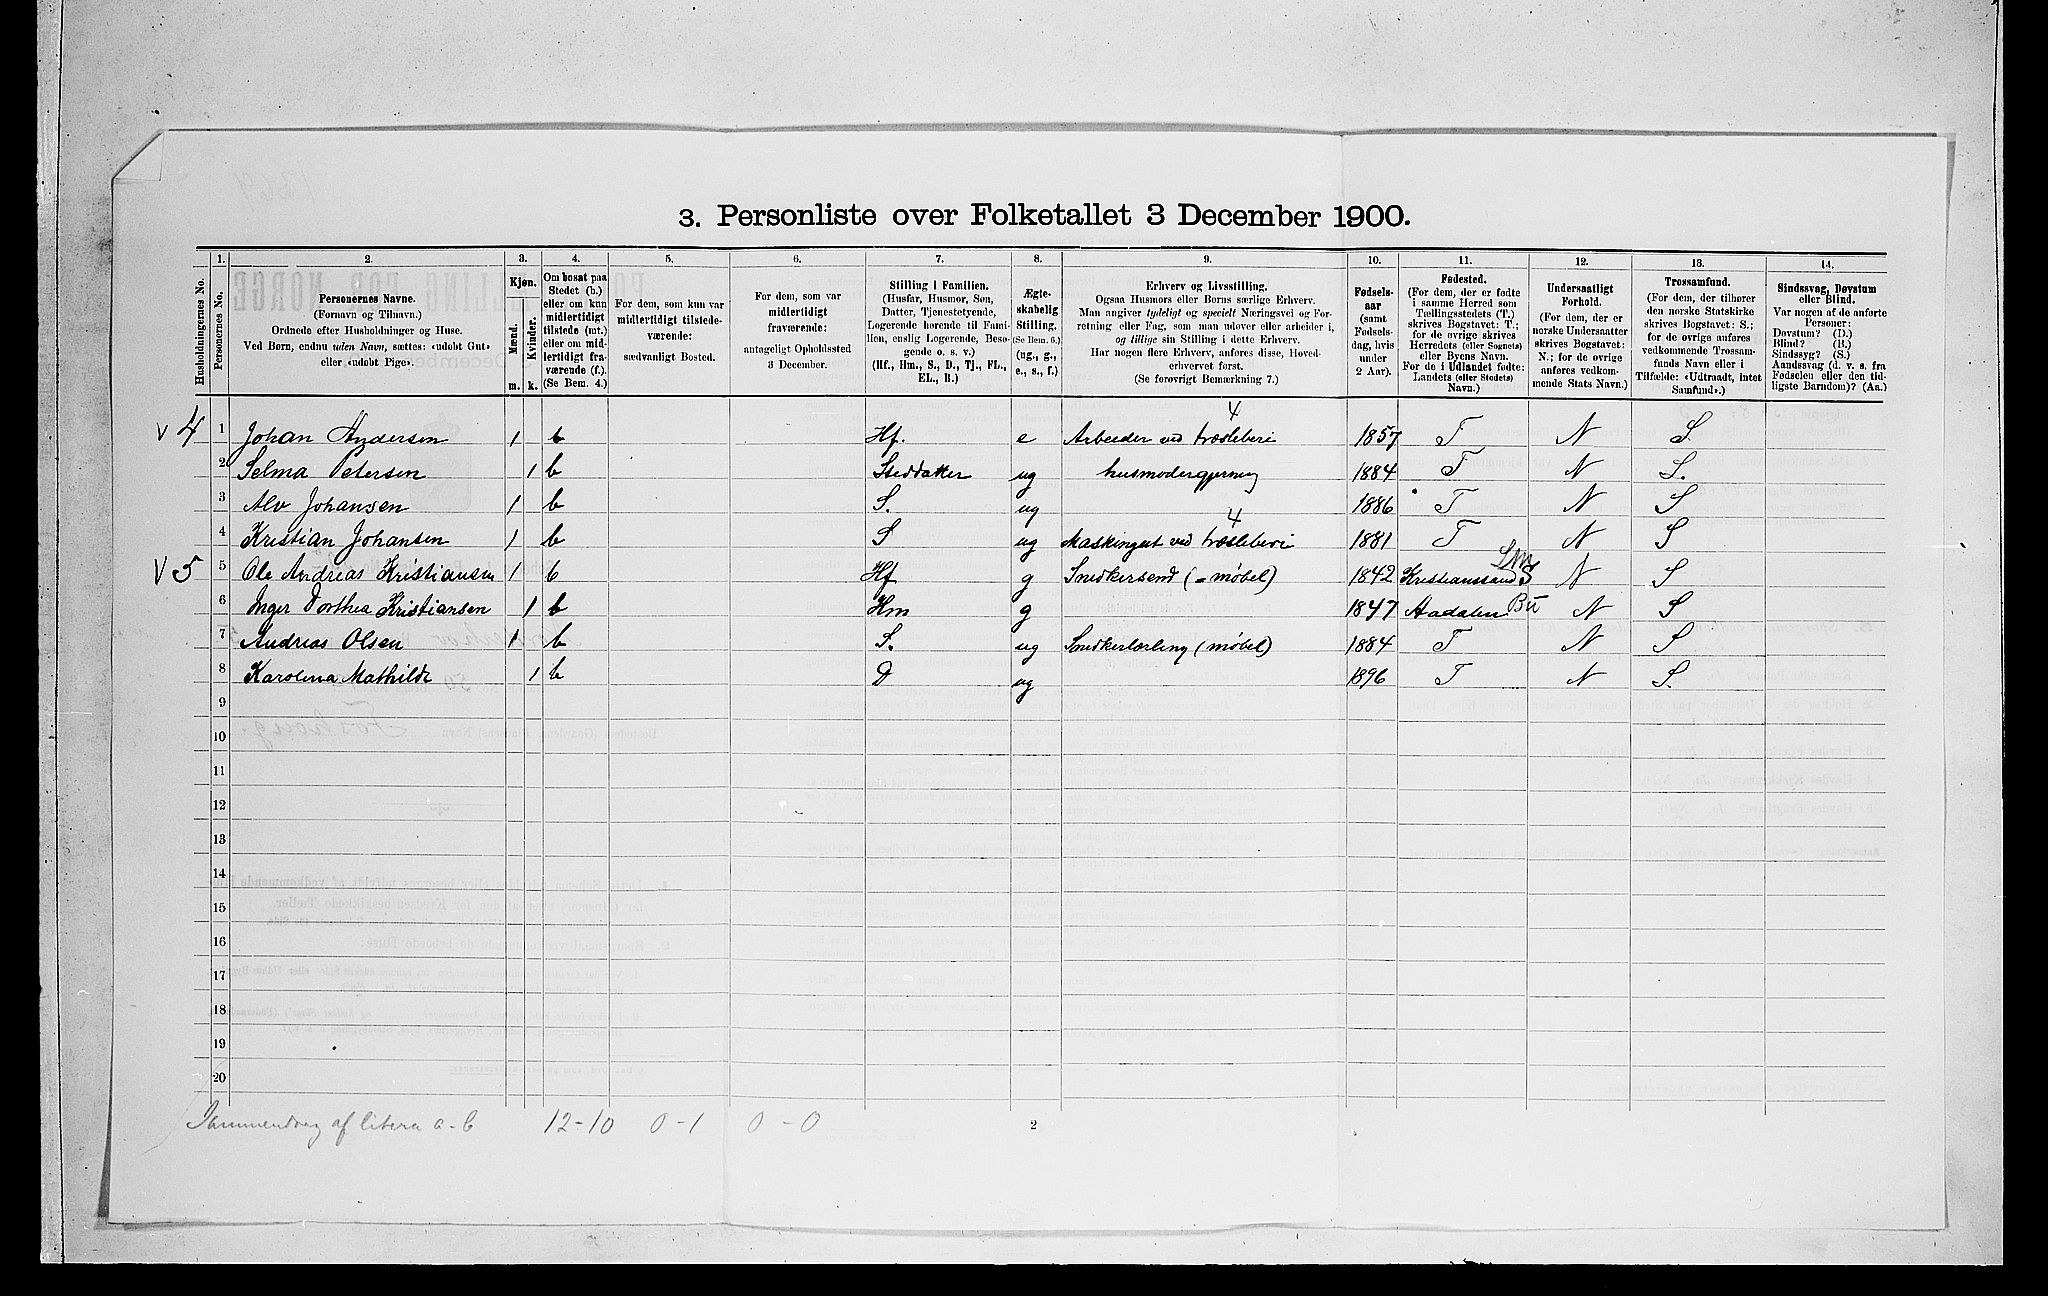 3. Personliste over Folketallet 3 December 1900.
1. 2. 3. 4. 5. 6. 7. 8. 9. 10. 11. 12. 13. 14.
Husholdningernes No.
Personernes No.
Personernes Navne.
(Fornavn og Tilnavn.)
Ordnede efter Husholdninger og Huse.
Ved Børn, endnu uden Navn, sættes: «udøbt Gut»
eller «udøbt Pige».
Kjøn.
Mænd. Kvinder.
m. k.
Om bosat paa
Stedet (b.)
eller om kun
midlertidigt
tilstede (mt.)
eller om mid-
lertidigt fra-
værende (f.).
(Se Bem. 4.)
For dem, som kun var
midlertidigt tilstede-
værende:
sædvanligt Bosted.
For dem, som var
midlertidigt
fraværende:
antageligt Opholdssted
3 December.
Stilling i Familien.
(Husfar, Husmor, Søn,
Datter, Tjenestetyende,
Logerende hørende til Fami-
lien, enslig Logerende, Besø-
gende o. s. v.)
(Hf., Hm., S., D., Tj., FL.,
EL., B.)
Ægte-
skabelig
Stilling.
(Se Bem. 6.)
(ug., g.,
e., s., f.)
Erhverv og Livsstilling.
Ogsaa Husmors eller Børns særlige Erhverv.
Man angiver tydeligt og specielt Næringsvei og For-
retning eller Fag, som man udøver eller arbeider i,
og tillige sin Stilling i dette Erhverv.
Har nogen flere Erhverv, anføres disse, Hoved-
erhvervet først.
(Se forøvrigt Bemærkning 7.)
Fødsels-
aar
(samt
Fødsels-
dag, hvis
under
2 Aar).
Fødested.
(For dem, der er fødte
i samme Herred som
Tællingsstedets (T.)
skrives Bogstavet: T.;
for de øvrige skrives
Herredets (eller Sognets)
eller Byens Navn.
For de i Udlandet fødte:
Landets (eller Stedets)
Navn.)
Undersaatligt
Forhold.
(For dem, der er
norske Undersaatter
skrives Bogstavet:
N.; for de øvrige
anføres vedkom-
mende Stats Navn.)
Trossamfund.
(For dem, der tilhører
den norske Statskirke
skrives Bogstavet: S.;
for de øvrige anføres
vedkommende Trossam-
funds Navn eller i
Tilfælde: «Udtraadt, intet
Samfund».)
Sindssvag, Døvstum
eller Blind.
Var nogen af de anførte
Personer:
Døvstum? (D.)
Blind? (B.)
Sindssyg? (S.)
Aandssvag (d. v. s. fra
Fødselen eller den tid-
ligste Barndom)? (Aa.)
v 4 1 Johan Andersen 1 b Hf. e Arbeider ved træsliberi 4 1857 T N S.
2 Selma Petersen 1 b Steddatter ug husmodergjerning 1884 T N S.
3 Alv Johansen 1 b S. ug 1886 T N S
4 Kristian Johansen 1 b S ug Maskingut ved træsliberi 4 1881 T N S
v 5 5 Ole Andreas Kristiansen 1 b Hf g Snedkersvend (= møbel) 1842 Kristianssand S N S
6 Inger Dorthea Kristiansen 1 b Hm g 1847 Aadalen Bu N S
7 Andreas Olsen 1 b S. ug Snedkerlærling (møbel) 1884 T N S
8 Karolina Mathilde 1 b D ug 1896 T N S.
9
10
11
12
13
14
15
16
17
18
19
20
Sammendrag af litera a-b 12-10 0-1 0-0
2